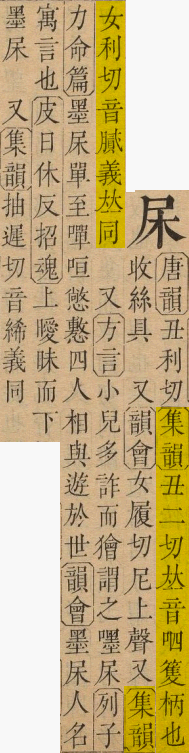 杘
唐韻丑利切集韻丑二切𠀤音呬籆柄也
收絲具　又韻會女履切尼上聲又集韻
女利切音膩義𠀤同　又方言小兒多詐而獪謂之嚜杘列子
力命篇墨杘單至嘽咺憋懯四人相與遊於世韻會墨杘人名
寓言也皮日休反招魂上曖昧而下
墨杘　又集韻抽遲切音絺義同